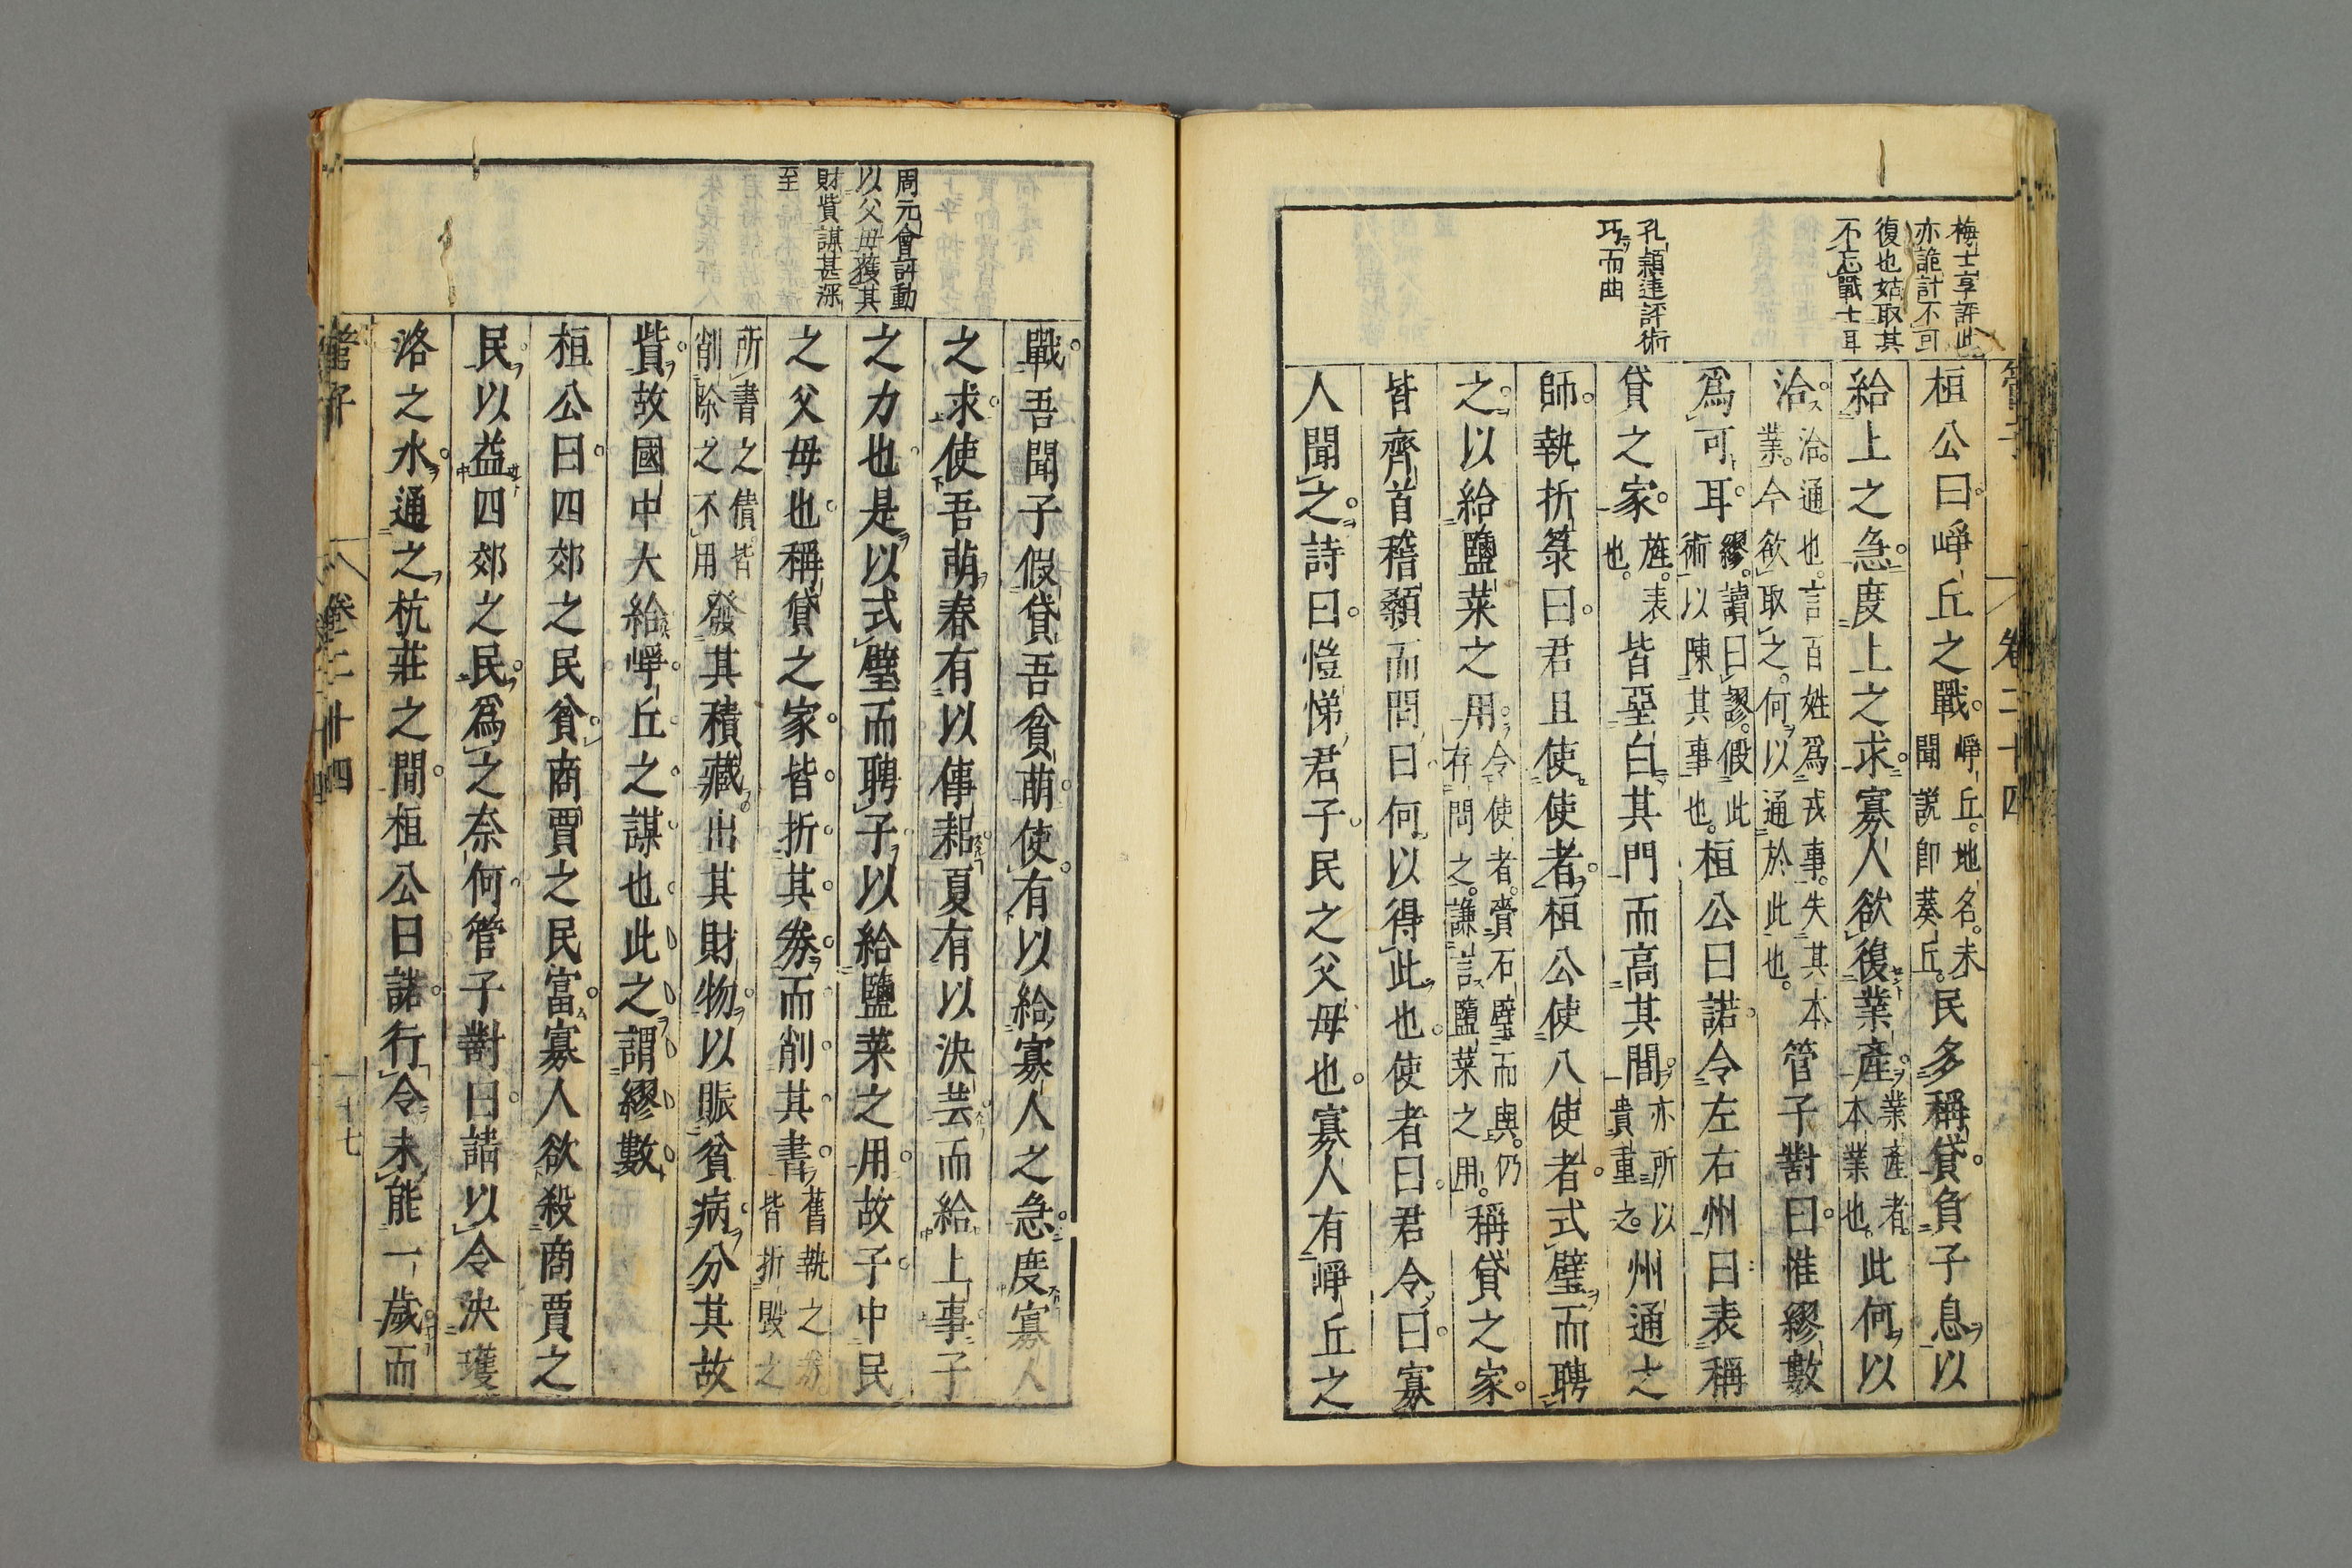 管子
卷二十四
梅士享評此
亦詭計不可
復也姑取其
不忘戰士耳
孔頴達評術
巧而曲
桓公曰崢丘之戰崢丘地名未聞説即葵丘民多稱貸負子息以
給上之急度上之求寡人欲復業產業產者本業也此何以
洽洽通也言百姓爲戎事失其本業今欲取之何以通於此也管子對曰惟繆數
爲可耳繆讀曰謬假此術以陳其事也桓公曰諾令左右州曰表稱
貸之家旌表也皆堊白其門而高其閭亦所以貴重之州通之
師執折箓曰君且使使者桓公使八使者式璧而聘
之以給鹽菜之用令使者賫石璧而與仍存問之謙言鹽菜之用稱貸之家
皆齊首稽顙而問曰何以得此也使者曰君令曰寡
人聞之詩曰愷悌君子民之父母也寡人有崢丘之
周元會評動
以父母獲其
財貲謀甚深
至
戰吾聞子假貸吾貧萌使有以給寡人之急度寡人
之求使吾萌春有以傳耜夏有以決芸而給上事子
之力也是以式璧而聘子以給鹽菜之用故子中民
之父母也稱貸之家皆折其券而削其書舊執之券皆折毀之
所書之債皆削除之不用發其積藏出其財物以賑貧病分其故
貲故國中大給崢丘之謀也此之謂繆數
桓公曰四郊之民貧商賈之民富寡人欲殺商賈之
民以益四郊之民爲之奈何管子對曰請以令決瓁
洛之水通之杭莊之間桓公曰諾行令未能一歲而
管子
卷二十四
十七